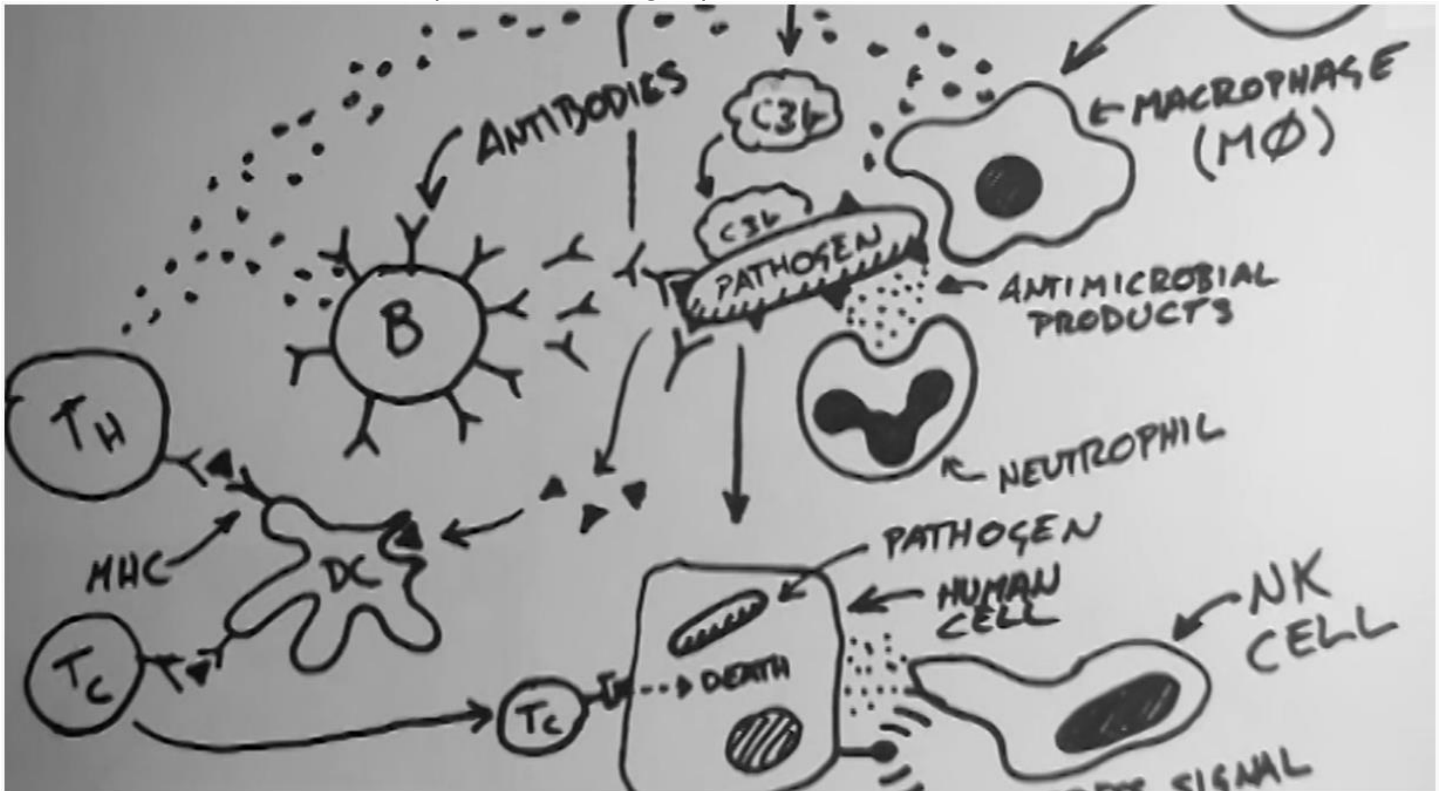 ANTIBODIES
C3b
MACROPHAGE
(MØ)
C3b
PATHOGEN
B
ANTIMICROBIAL
PRODUCTS
TH
NEUTROPHIL
MHC
DC
PATHOGEN
HUMAN
CELL
NK
CELL
TC
TC
DEATH
SIGNAL